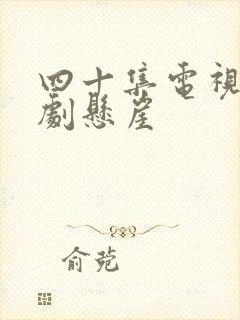 四十集電視
劇懸崖
俞菀